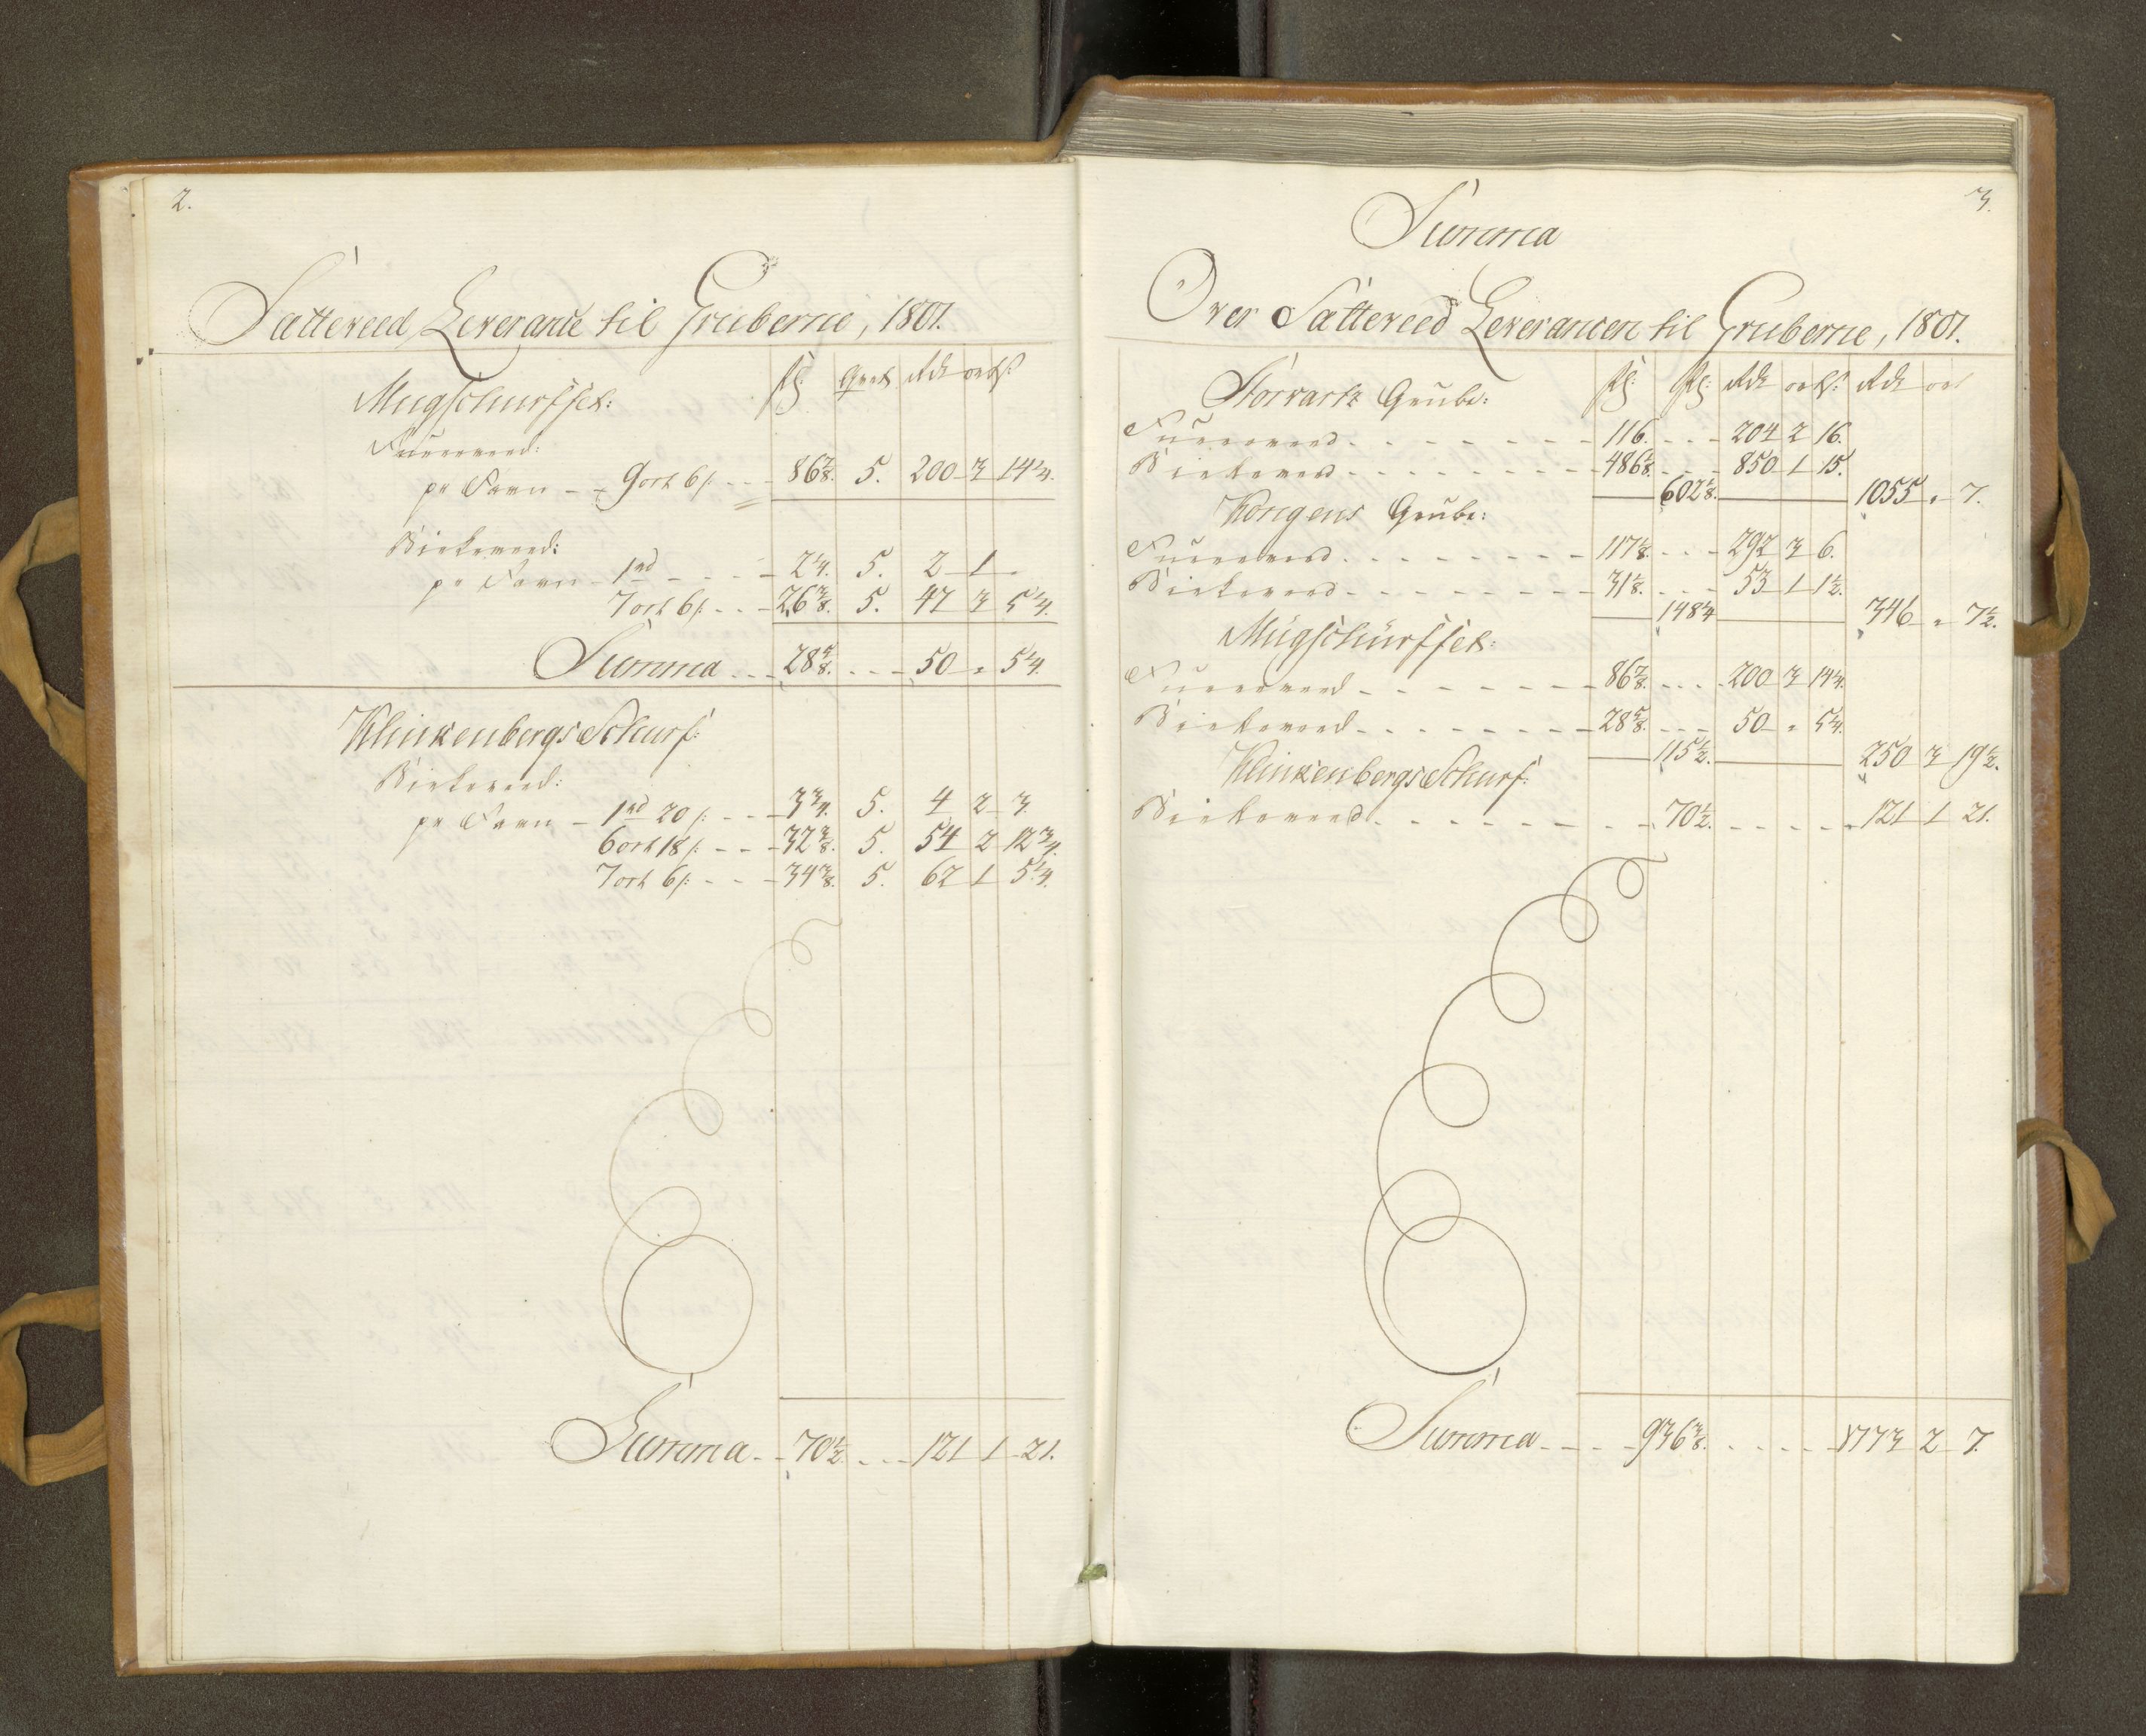 2.
Sætteveed Leverance til Gruberne, 1801.
Mugschurffet:
Fuureveed:
pr Favn - 9 ort 6 s: - - 86 7/8. 5. 200 3 14 1/4.
Birkeveed:
pr Favn - 1 rd - - - 2 1/4. 5. 2 1 -
7 ort 6 s: - - 26 3/8. 5. 47 3 5 1/4.
Summa - - 28 5/8. - - - 50 " 5 1/4.
Klinkenbergs Schurf:
Birkeveed:
pr Favn - 1 rd 20 s: - - 3 3/4. 5. 4 2 3.
6 ort 18 s: - - 32 3/8. 5. 54 2 12 3/4.
7 ort 6 s: - - 34 3/8. 5. 62 1 5 1/4.
Summa - - 70 1/2. - - - 121 1 21.
3.
Summa
Over Sætteveed Leverancen til Gruberne, 1801.
Storvartz Grube:
Fuureveed - - - 116. - - - 204 2 16.
Birkeveed - - - 486 1/8. - - - 850 1 15.
602 1/8. 1055 " 7.
Kongens Grube:
Fuureveed - - - 117 1/8. - - - 292 3 6.
Birkeveed - - - 31 1/8. - - - 53 1 1 1/2.
148 1/4 346 " 7 1/2.
Mugschurffet:
Fuureveed - - - 86 7/8. - - - 200 3 14 1/4.
Birkeveed - - - 28 5/8. - - - 50 " 5 1/4.
115 1/2. 250 3 19 1/2.
Klinkenbergs Schurf:
Birkeveed - - - 70 1/2. - - - 121 1 21.
Summa - - - 936 3/8. - - - 1773 2 7.